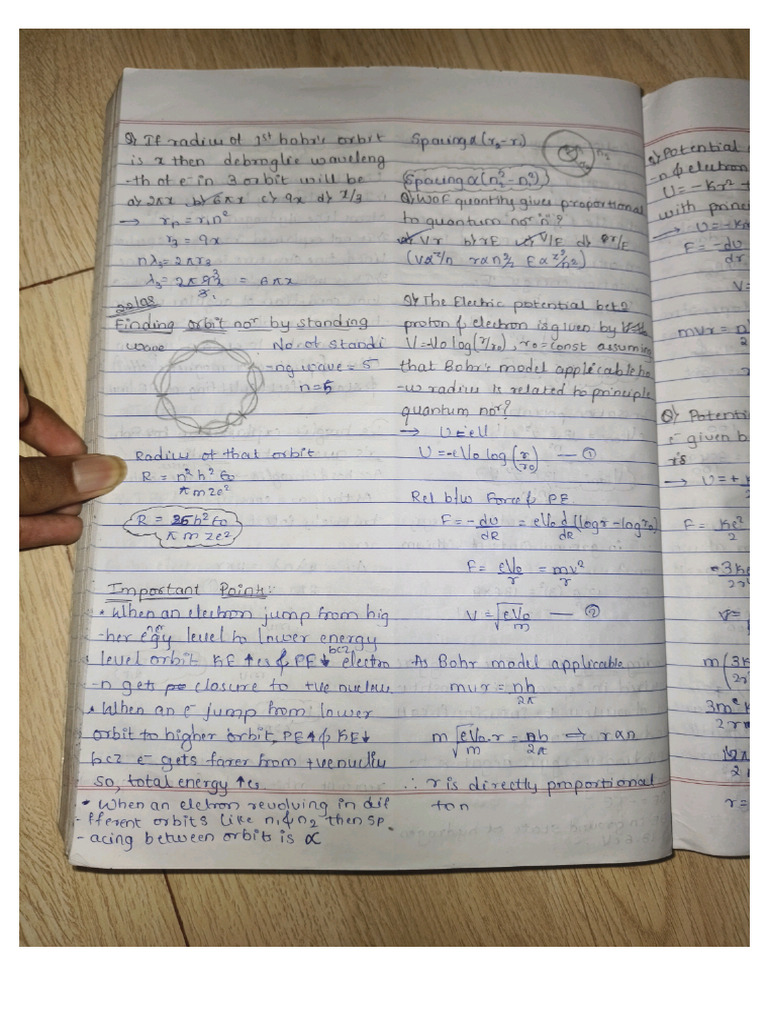 Q) If radius of 1st bohr's orbit
is x then debroglie waveleng
-th of e- in 3 orbit will be
a) 2πx b) 6πx c) 9x d) x/3
→ rn = r1n²
r3 = 9x
nλ3 = 2πr3
λ3 = 2π 9x/3 = 6πx
Finding orbit nor by standing
wave
No. of standi
-ng wave = 5
n=5
Radius of that orbit
R = n²h²ε0/πmze²
R = 25h²ε0/πmze²
Important Points:-
• When an electron jump from hig
-her enregy level to lower energy
level orbit KE ↑es & PE↓ bcz electro
-n gets closure to +ve nucleu
• When an e- jump from lower
orbit to higher orbit, PE↑ & KE↓
bcz e- gets farer from +ve nucliu
so, total energy ↑es
• When an elctron revolving in dif
-fferent orbits like n1 & n2 then sp
-acing between orbits is ∝
Spacing ∝ (r2-r1)
n2
Spacing ∝ (n2²-n1²)
Q) WOF quantity gives proportional
to quantum nor 'n'?
a) Vr b) rE c) V/E d) r/E
(V∝z/n r∝n²/z E∝z²/n²)
Q) The Electric potential betn
proton & electron is given by
V=V0 log(r/r0), r0=const assumin
that Bohr's model applicable ho
-w radius is related to principle
quantum nor?
→ U=eV
U=-eV0 log(r/r0) — ①
Rel b/w Force & PE
F=-dU/dR = eV0 d/dR (logr-logr0)
F= eV0/r = mv²/r
V = √eV0/m — ②
As Bohr model applicable
mvr = nh/2π
m√eV0/m .r = nh/2π ⇒ r∝n
∴ r is directly proportional
to n
Q) Potential
-n & electron
U = -kr²
with princ
F = -dU/dr
V=
mvr = n
Q) Potenti
e- given b
r is
→ U=+
F= ke²/2
-3ke
2r
3m²k
r=